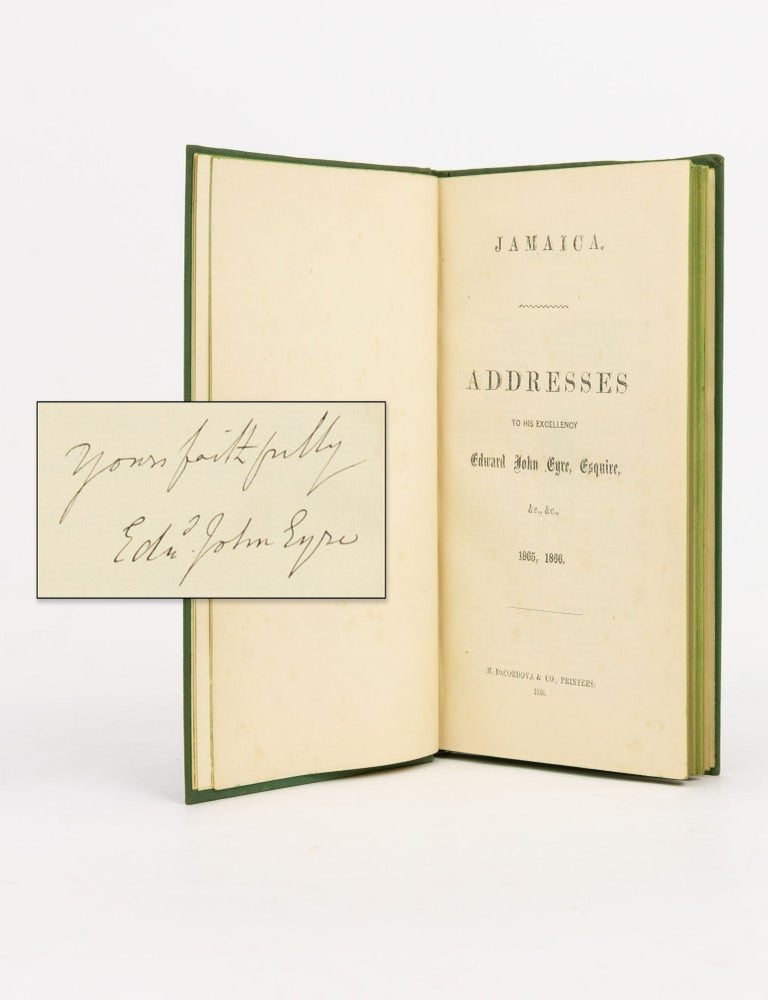 JAMAICA.
ADDRESSES
TO HIS EXCELLENCY
Edward John Eyre, Esquire,
&c., &c.,
1865, 1866.
M. DeCORDOVA & CO., PRINTERS,
1866.
Yours faithfully
Edwd. John Eyre